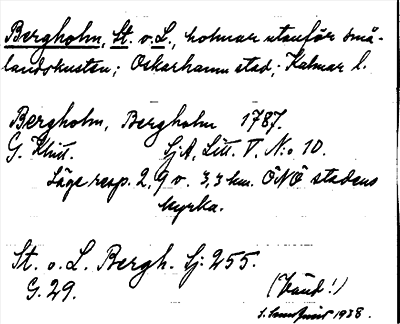 Bergholm, St. o. L., holmar utanför små-
landskusten; Oskarhamn stad; Kalmar l.
Bergholm, Bergholm 1787.
G. Klint. SjA, Litt. V. N:o 10.
Läge resp. 2,9 o. 3,3 km. ONÖ stadens
kyrka.
St. o. L. Bergh. Sj. 255.
G. 29. (Vänd!)
1938.